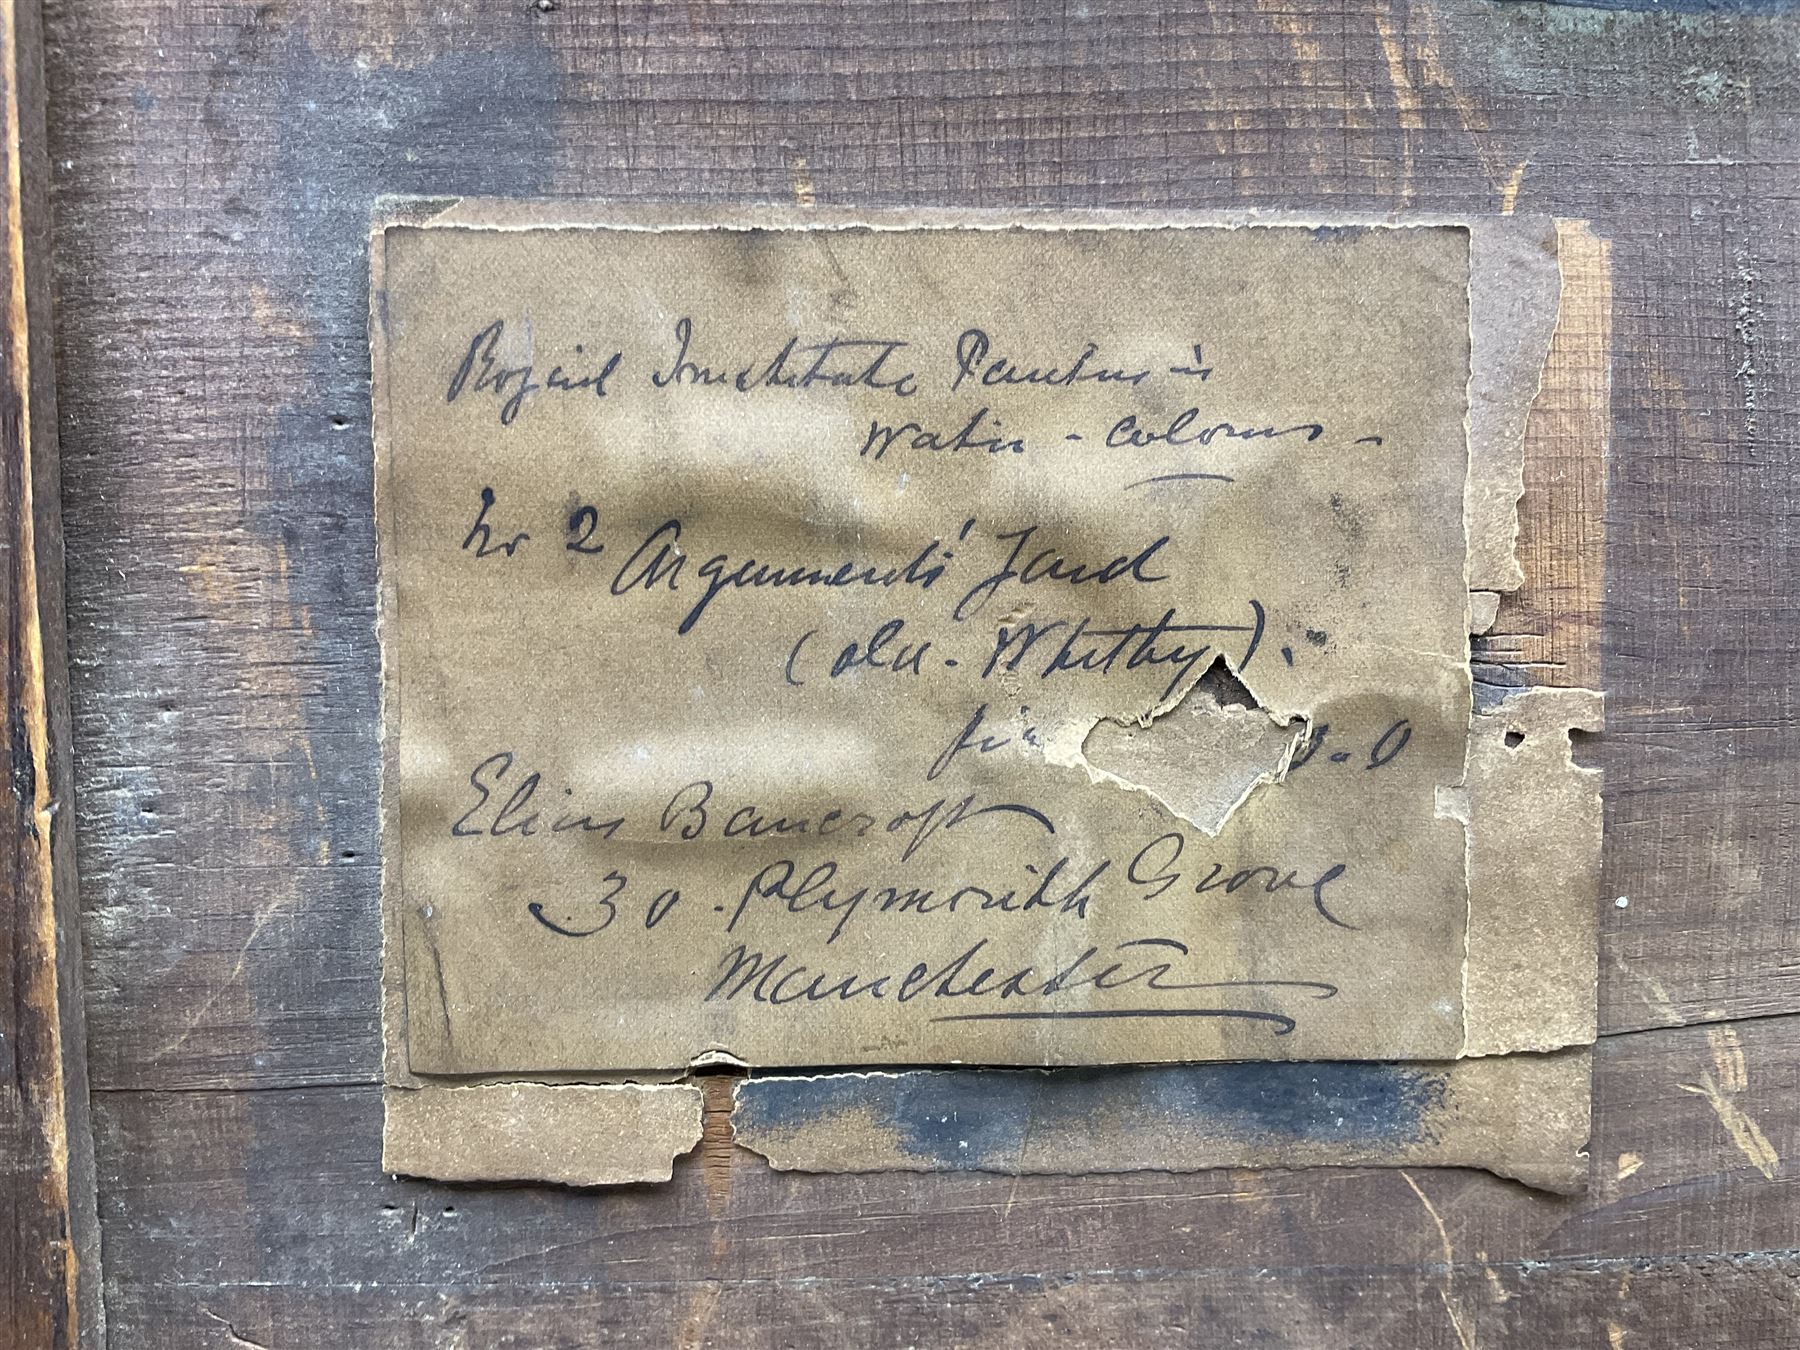 Royal Institute Painters in
Water-Colours-
No 2 Arguments' Yard
(old-Whitby).
0.0
Elias Bancroft
30. Plymouth Grove
Manchester